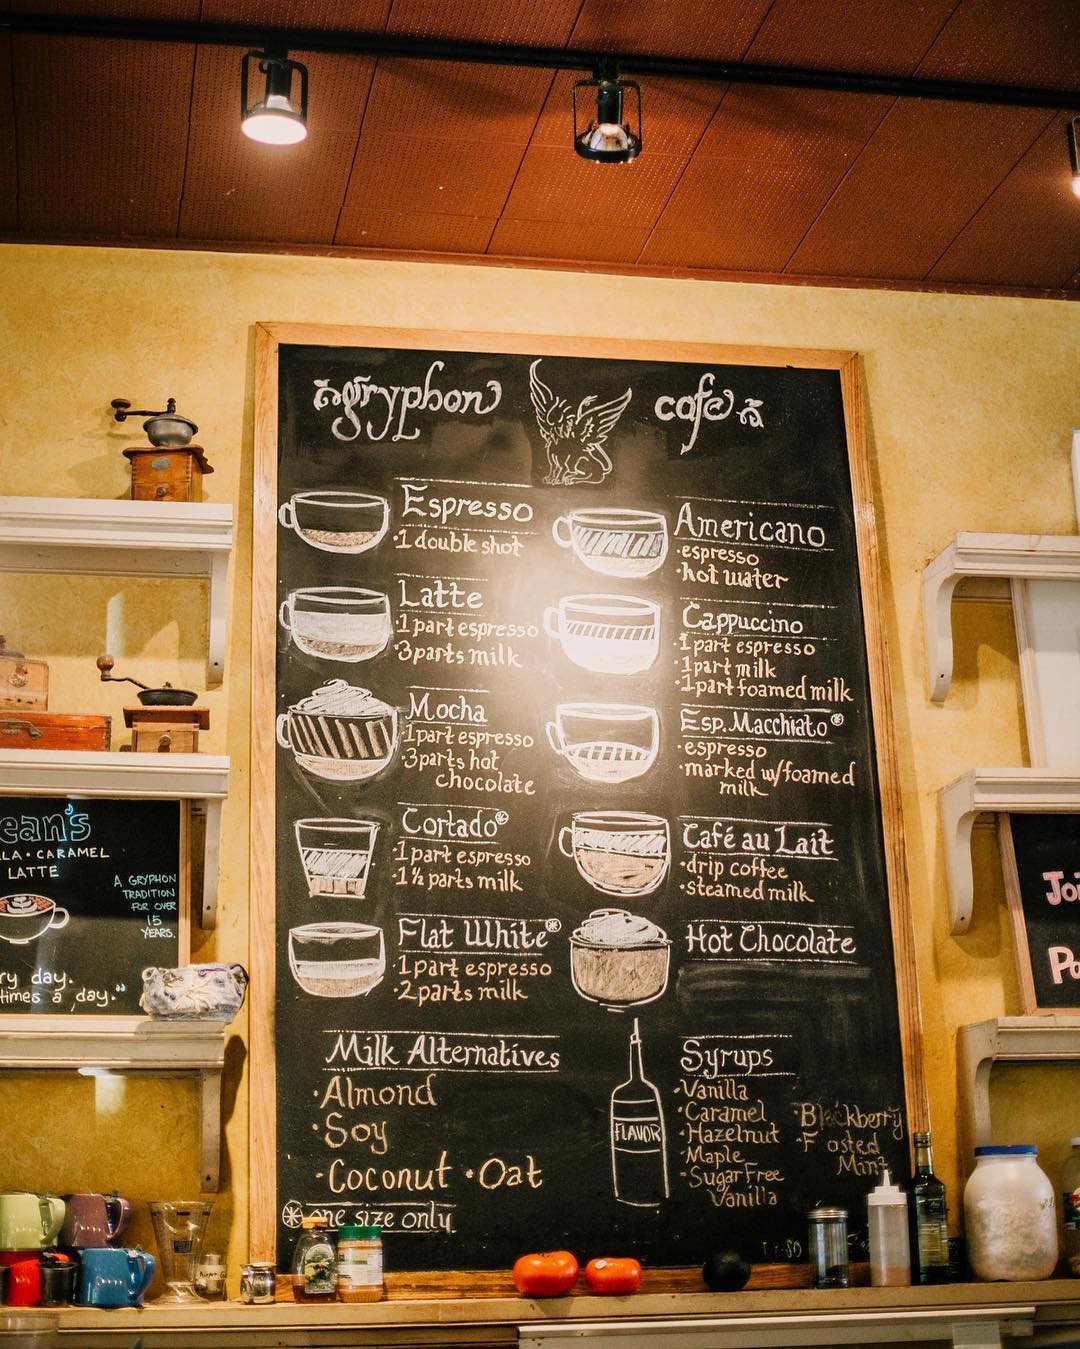 gryphon cafe
Espresso
·1 double shot
Latte
·1 part espresso
·3 parts milk
Mocha
·1 part espresso
·3 parts hot
chocolate
Cortado⊛
·1 part espresso
·1 ½ parts milk
Flat White⊛
·1 part espresso
·2 parts milk
Americano
·espresso
·hot water
Cappuccino
·1 part espresso
·1 part milk
·1 part foamed milk
Esp. Macchiato⊛
·espresso
·marked w/foamed
milk
Café au Lait
·drip coffee
·steamed milk
Hot Chocolate
Milk Alternatives
·Almond
·Soy
·Coconut ·Oat
⊛ one size only
FLAVOR
Syrups
·Vanilla
·Caramel
·Hazelnut
·Maple
·Sugar Free
Vanilla
·Blackberry
·F osted
Mint
ean's
LA · CARAMEL
LATTE
A GRYPHON
TRADITION
FOR OVER
15
YEARS.
ry day.
times a day."
Joi
Pa